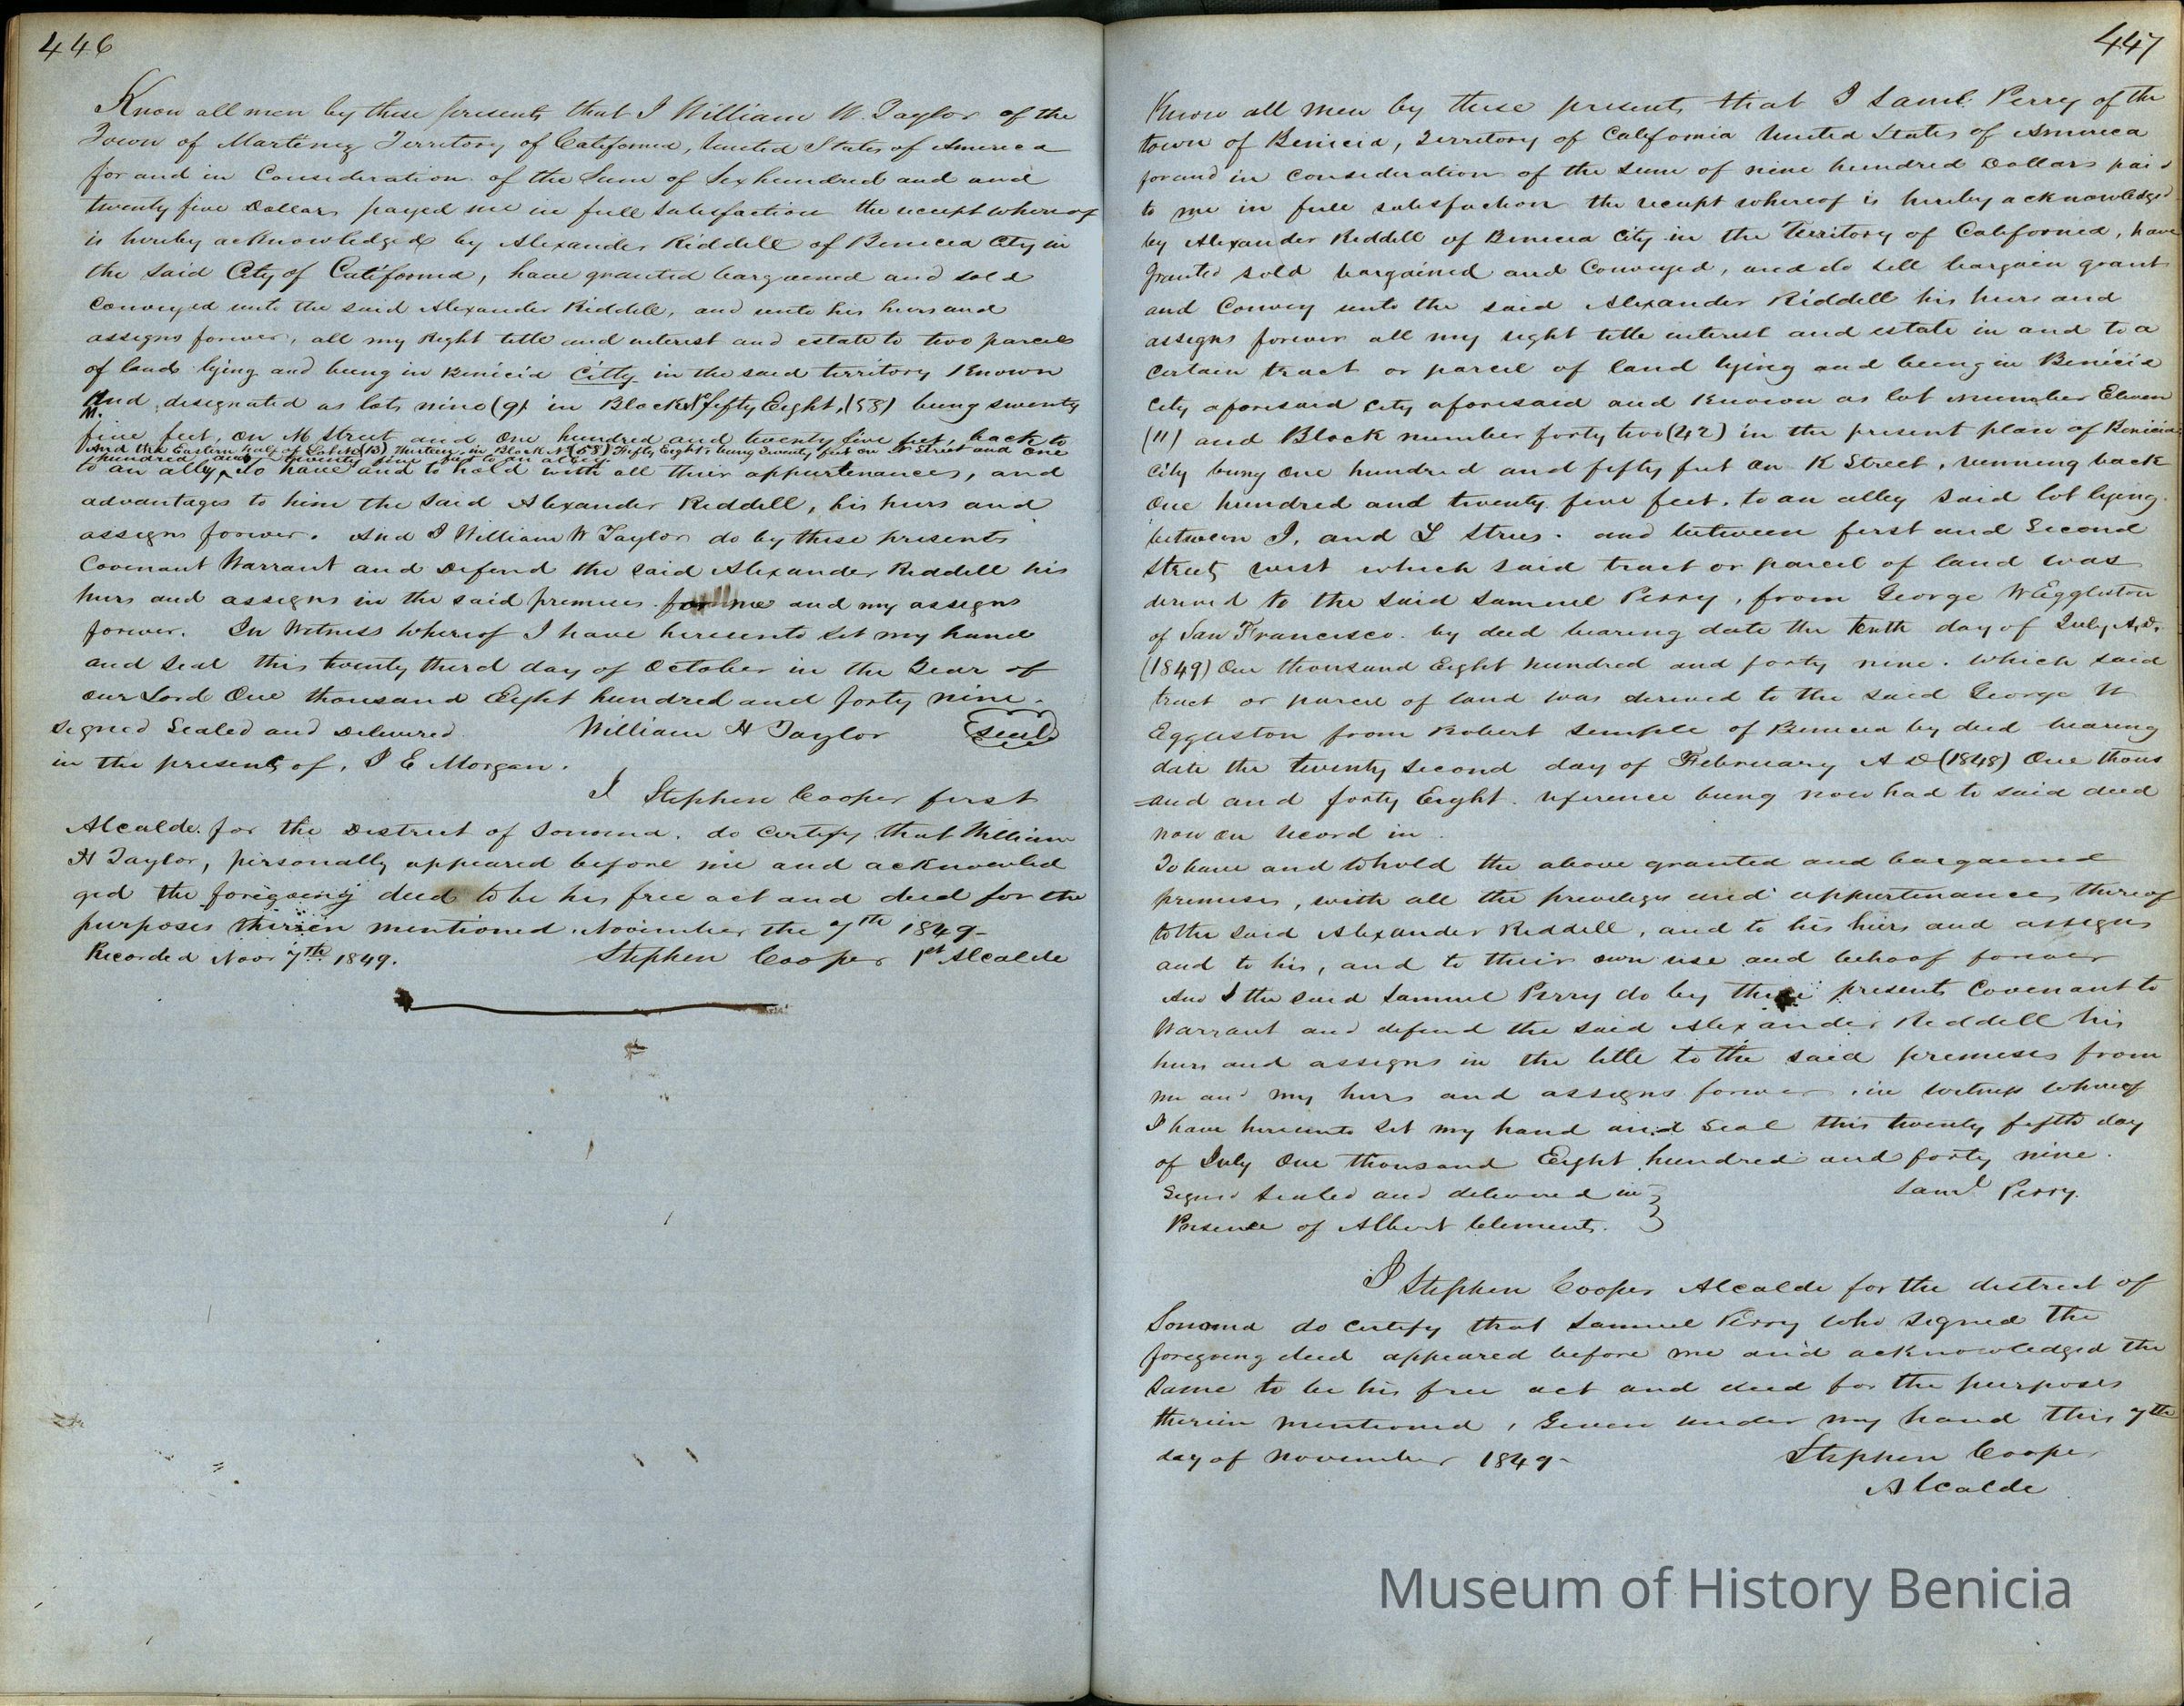 446
Know all men by these presents that I William W. Taylor of the
Town of Martinez Territory of California, United States of America
for and in Consideration of the Sum of Six hundred and and
twenty five Dollars payed me in full satisfaction the receipt whereof
is hereby acknowledged by Alexander Riddell of Benicia City in
the said City of California, have granted bargained and sold
Conveyed unto the said Alexander Riddell, and unto his heirs and
assigns forever, all my Right title and interest and estate to two parcels
of land lying and being in Benicia Citty in the said territory Known
And designated as lots nine (9) in Block No fifty Eight, (58) being twenty
M.
five feet, on M Street and One hundred and twenty five feet, back to
And the Eastern half of Lot No (13) Thirteen, in Block No (58) Fifty Eight, being Twenty feet on Street and One
hundred and twenty five feet to an alley
to an ally, To have and to hold with all their appurtenances, and
advantages to him the said Alexander Riddell, his heirs and
assigns forever. And I William W Taylor do by these presents
Covenant Warrant and Defend the said Alexander Riddell his
heirs and assigns in the said premises me and my assigns
forever. In Witness Whereof I have hereunto set my hand
and seal this twenty third day of October in the Year of
our Lord One thousand Eight hundred and forty nine.
Signed Sealed and Delivered William H Taylor Seal
in the presents of, I E Morgan.
I Stephen Cooper first
Alcalde for the District of Sonoma, do Certify, that William
H Taylor, personally appeared before me and acknowled
ged the foregoeing deed to be his free act and deed for the
purposes therein mentioned. November the 7th 1849-
Recorded Novr 7th 1849. Stephen Cooper 1st Alcalde
447
Know all men by these presents that I Saml. Perry of the
town of Benicia, Territory of California United States of America
for and in Consideration of the sum of nine hundred Dollars paid
to me in full satisfaction the receipt whereof is hereby acknowledged
by Alexander Riddell of Benicia City in the Territory of California, have
Granted sold bargained and Conveyed, and do sell bargain grant
and Convey unto the said Alexander Riddell his heirs and
assigns forever all my right title interest and estate in and to a
Certain tract or parcel of land lying and being in Benicia
City aforesaid City aforesaid and Known as lot number Eleven
(11) and Block number forty two (42) in the present plan of Benicia
City being One hundred and fifty feet on K Street, running back
One hundred and twenty five feet, to an alley said lot lying
between I, and L Strees. and between first and Second
Streets west which said tract or parcel of land was
derived to the said Samuel Perry, from George W Eggleston
of San Francisco. by deed bearing date the tenth day of July, A,D,
(1849) One thousand Eight hundred and forty nine. Which said
tract or parcel of land was derived to the said George W
Eggleston from Robert Semple of Benicia by deed bearing
date the twenty second day of February A D (1848) One thous
=and and forty Eight. reference being now had to said deed
now on record in.
To have and to hold the above granted and bargained
premises, with all the priveleges and appurtenances thereof
to the said Alexander Riddell, and to his heirs and assigns
and to his, and to their own use and behoof forever
And I the said Samuel Perry do by these presents Covenant to
Warrant and defend the said Alexander Riddell his
heirs and assigns in the title to the said premises from
me and my heirs and assigns forever. in witness whereof
I have hereunto set my hand and Seal this twenty fifth day
of July One thousand Eight hundred and forty nine.
Signed Sealed and delivered in Saml Perry.
Presence of Albert Clements.
I Stephen Cooper Alcalde for the district of
Sonoma do certify that Samuel Perry who signed the
foregoing deed appeared before me and acknowledged the
Same to be his free act and deed for the purposes
therein mentioned, Given under my hand this 7th
day of November 1849- Stephen Cooper
Alcalde
Museum of History Benicia